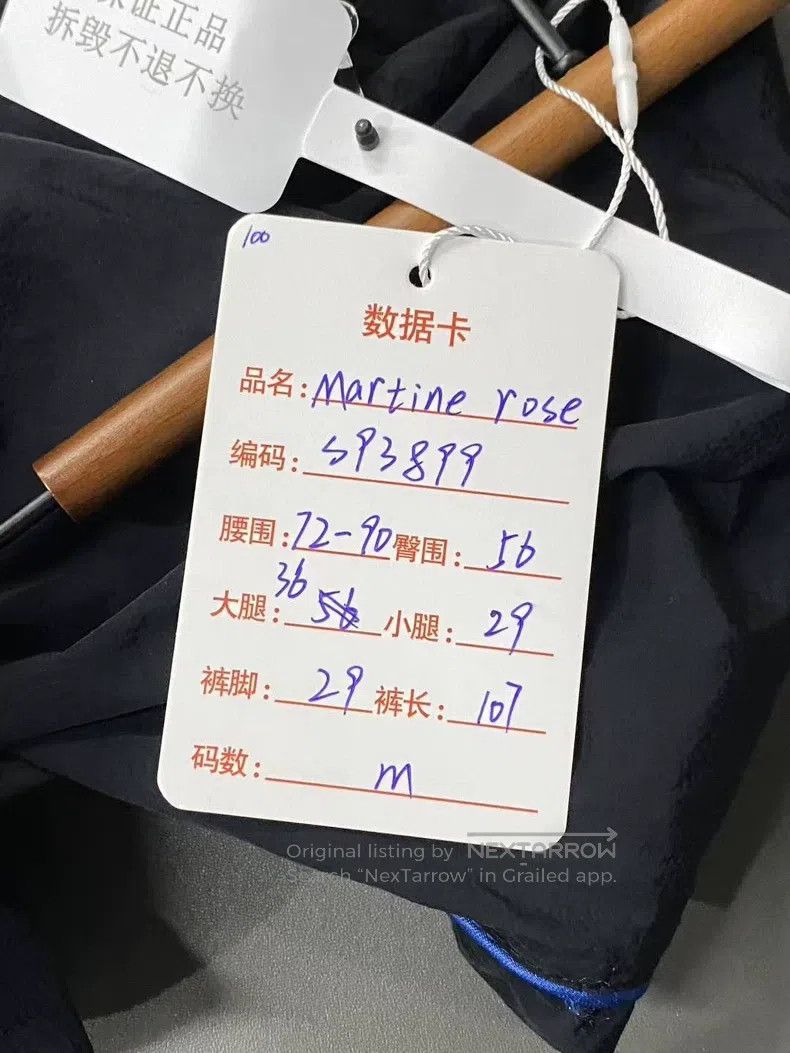 保证正品
拆毁不退不换
100
数据卡
品名: Martine rose
编码: S93899
腰围: 72-90 臀围: 56
大腿: 36 56 小腿: 29
裤脚: 29 裤长: 107
码数: m
Original listing by NEXTARROW
Search "NexTarrow" in Grailed app.